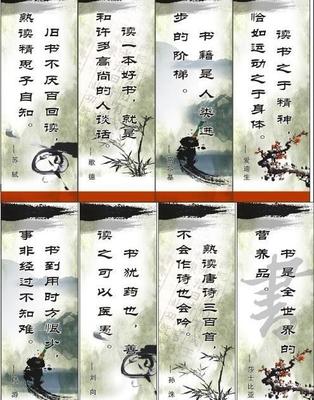 旧书不厌百回读
熟读精思子自知。
—苏轼
读一本好书,就是
和许多高尚的人谈话。
—歌德
书籍是人类进
步的阶梯。
—高尔基
读书之于精神,
恰如运动之于身体。
—爱迪生
书到用时方恨少,
事非经过不知难。
—陆游
书犹药也,善
读之可以医愚。
—刘向
熟读唐诗三百首,
不会作诗也会吟。
—孙洙
书是全世界的
营养品。
—莎士比亚
書